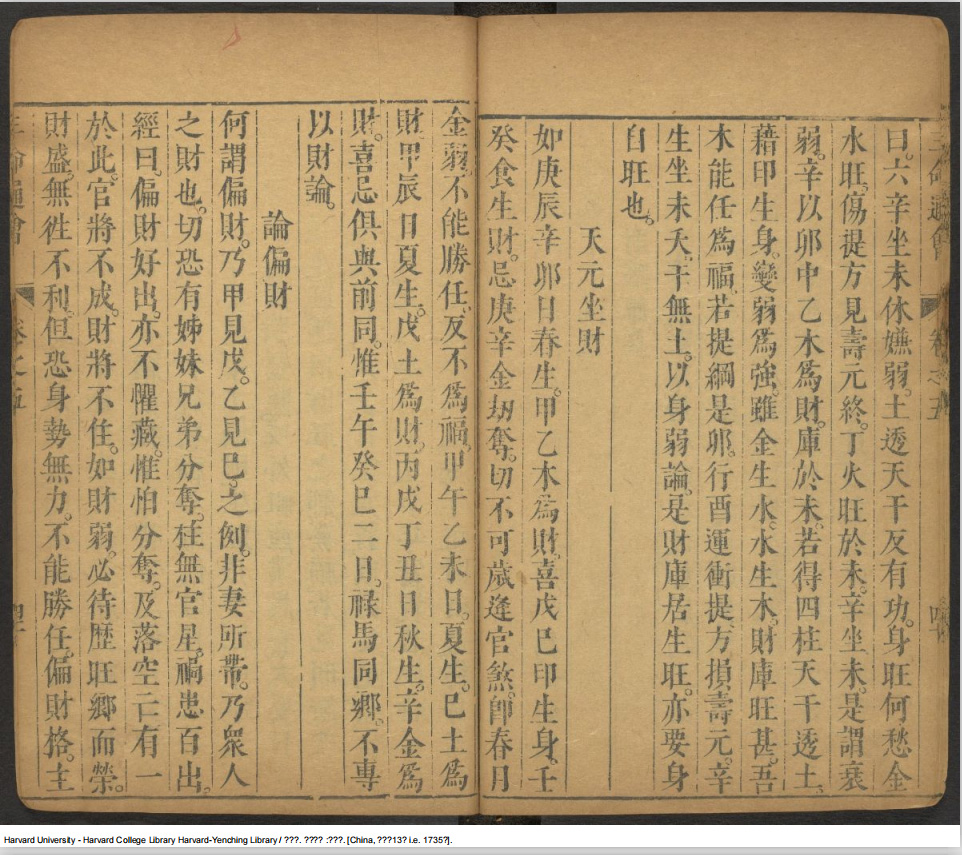 曰。六辛坐未休嫌弱。土透天干反有功。身旺何愁金
水旺。傷提方見壽元終。丁火旺於未。辛坐未。是謂衰
弱。辛以卯中乙木爲財。庫於未。若得四柱天干透土。
藉印生身。變弱爲強。雖金生水。水生木。財庫旺甚。吾
木能任爲福。若提綱是卯。行酉運衝提方損壽元。辛
生坐未天干無土。以身弱論。是財庫居生旺。亦要身
自旺也。
天元坐財
如庚辰辛卯日春生。甲乙木爲財。喜戊巳印生身。壬
癸食生財。忌庚辛金刼奪。切不可歲逢官煞。卽春月
金弱。不能勝任。反不爲福。甲午乙未日。夏生。巳土爲
財。甲辰日夏生。戊土爲財。丙戌丁丑日秋生。辛金爲
財。喜忌俱與前同。惟壬午癸巳二日。祿馬同鄉。不專
以財論。
論偏財
何謂偏財。乃甲見戊。乙見巳。之例。非妻所帶。乃衆人
之財也。切恐有姊妹兄弟分奪。柱無官星。禍患百出。
經曰。偏財好出。亦不懼藏。惟怕分奪。及落空亡有一
於此。官將不成。財將不住。如財弱。必待歷旺鄉而榮。
財盛。無徃不利。但恐身勢無力。不能勝任。偏財格。主
卷之五
Harvard University - Harvard College Library Harvard-Yenching Library / ???. ???? :???. [China, ???13? i.e. 1735?].